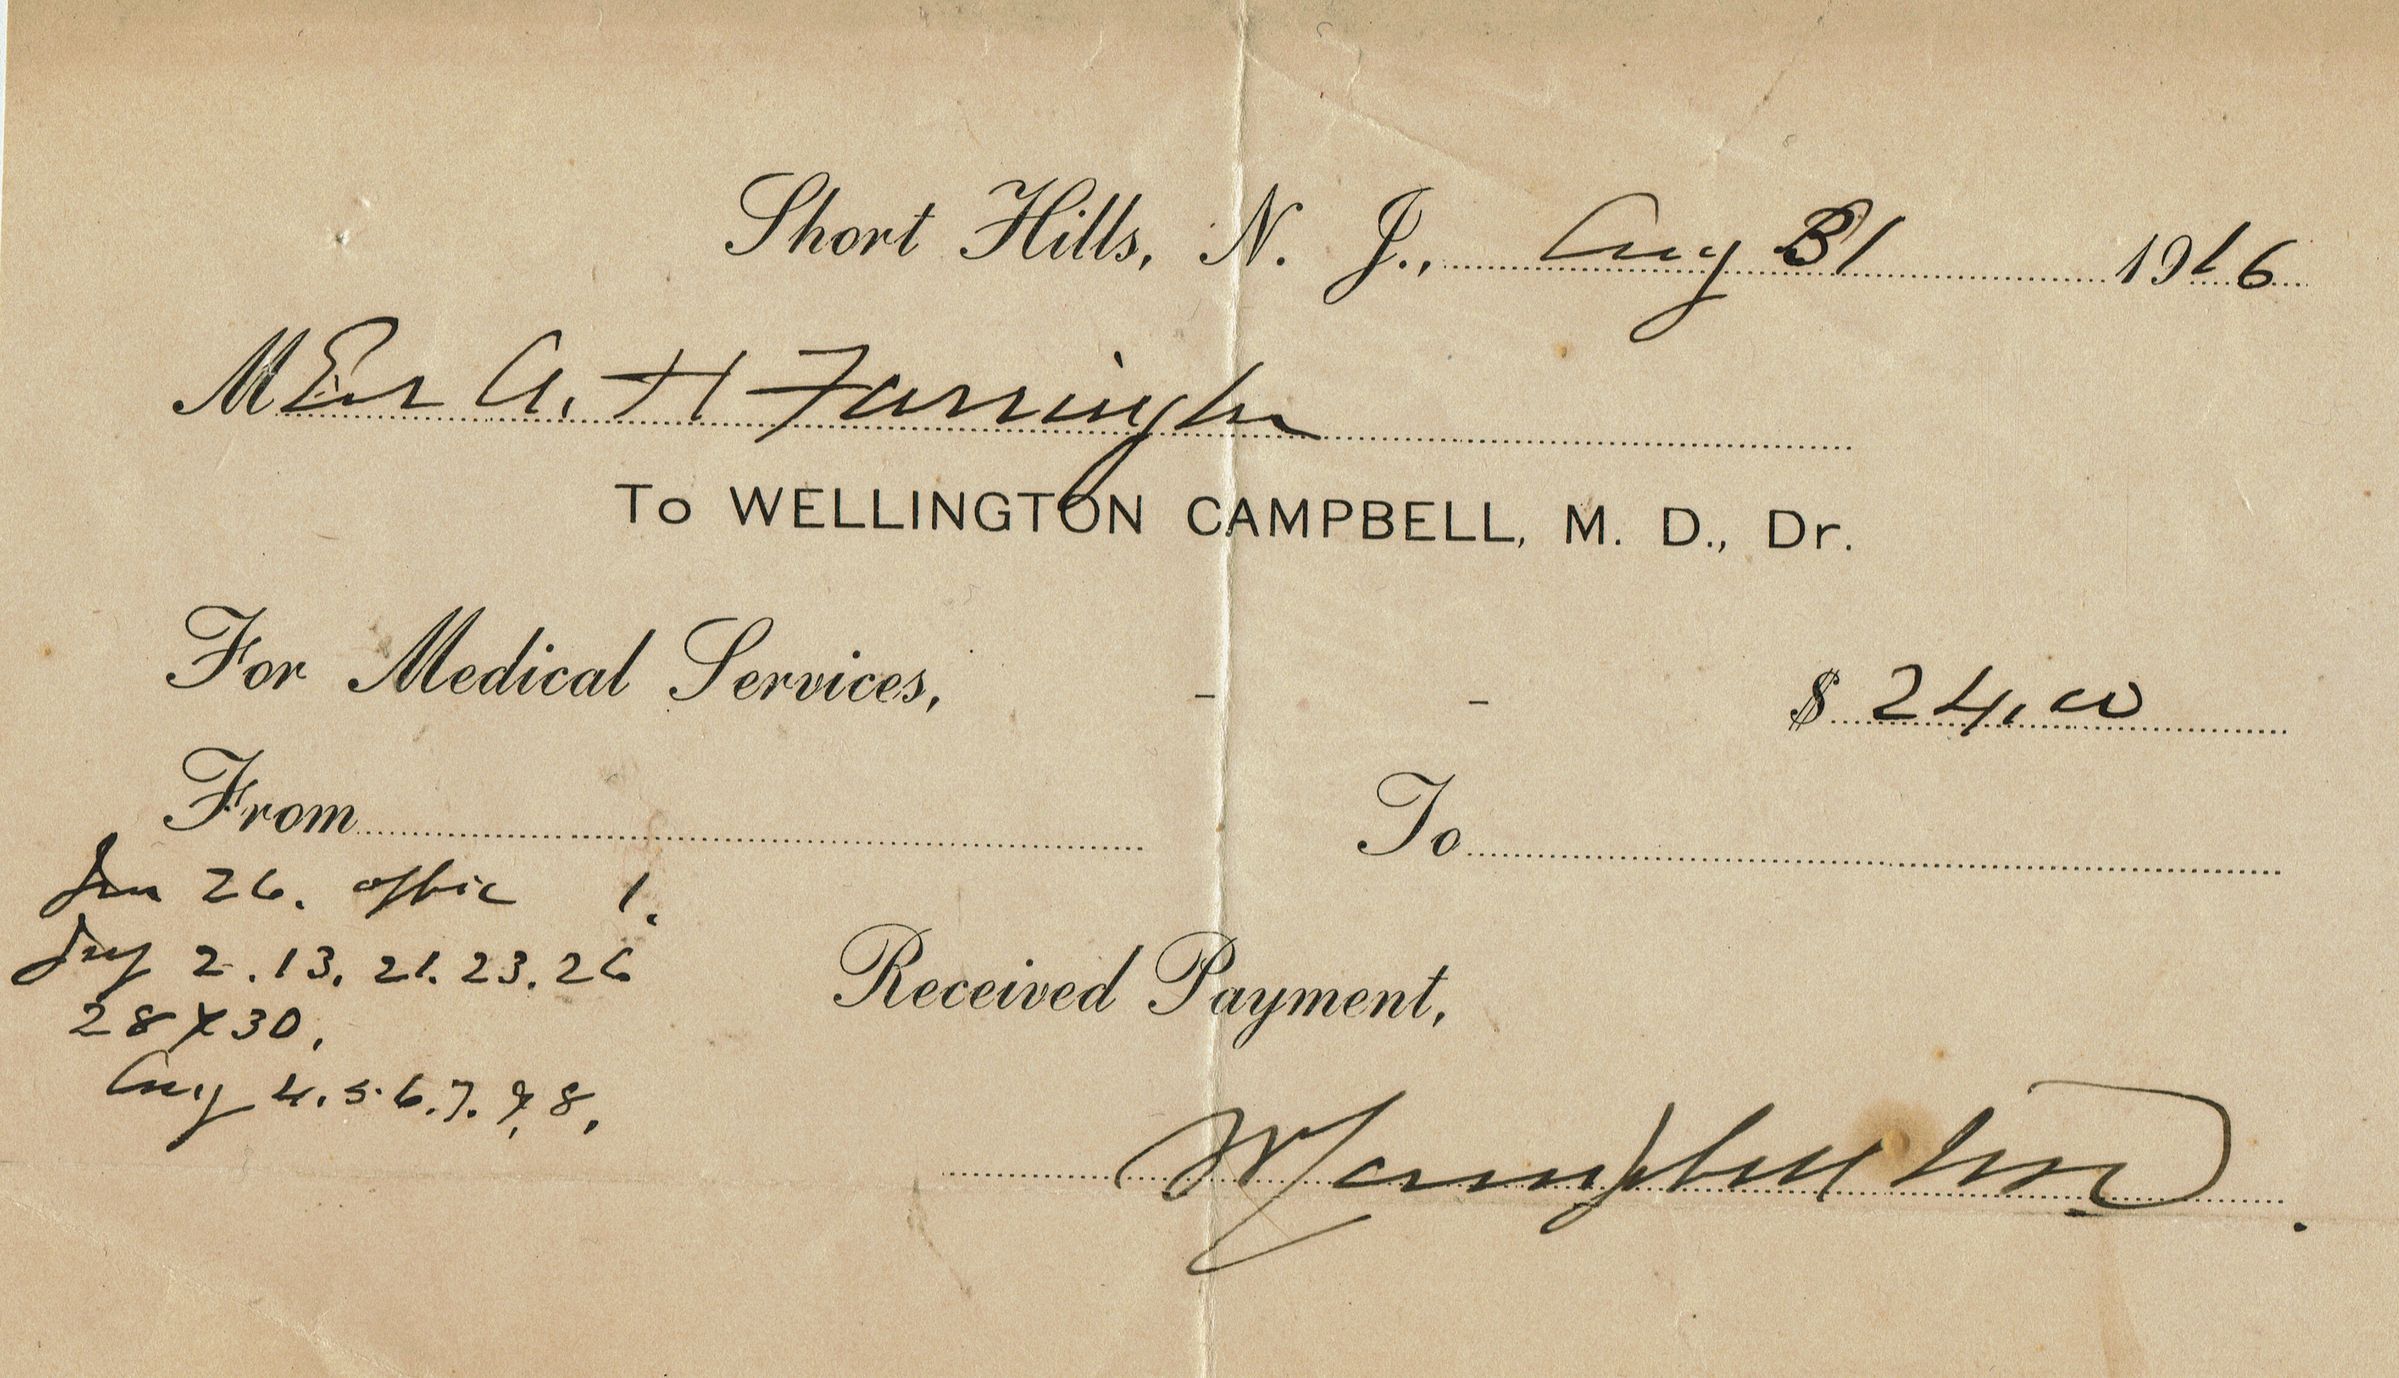 Short Hills, N. J., Aug 31 1916
M Est A. H Farrington
To WELLINGTON CAMPBELL, M. D., Dr.
For Medical Services, - - $ 24.00
From To
Jun 26. offic 1.
July 2. 13. 21. 23. 26
28 & 30.
Aug 4. 5. 6. 7. & 8.
Received Payment,
W Campbell MD.